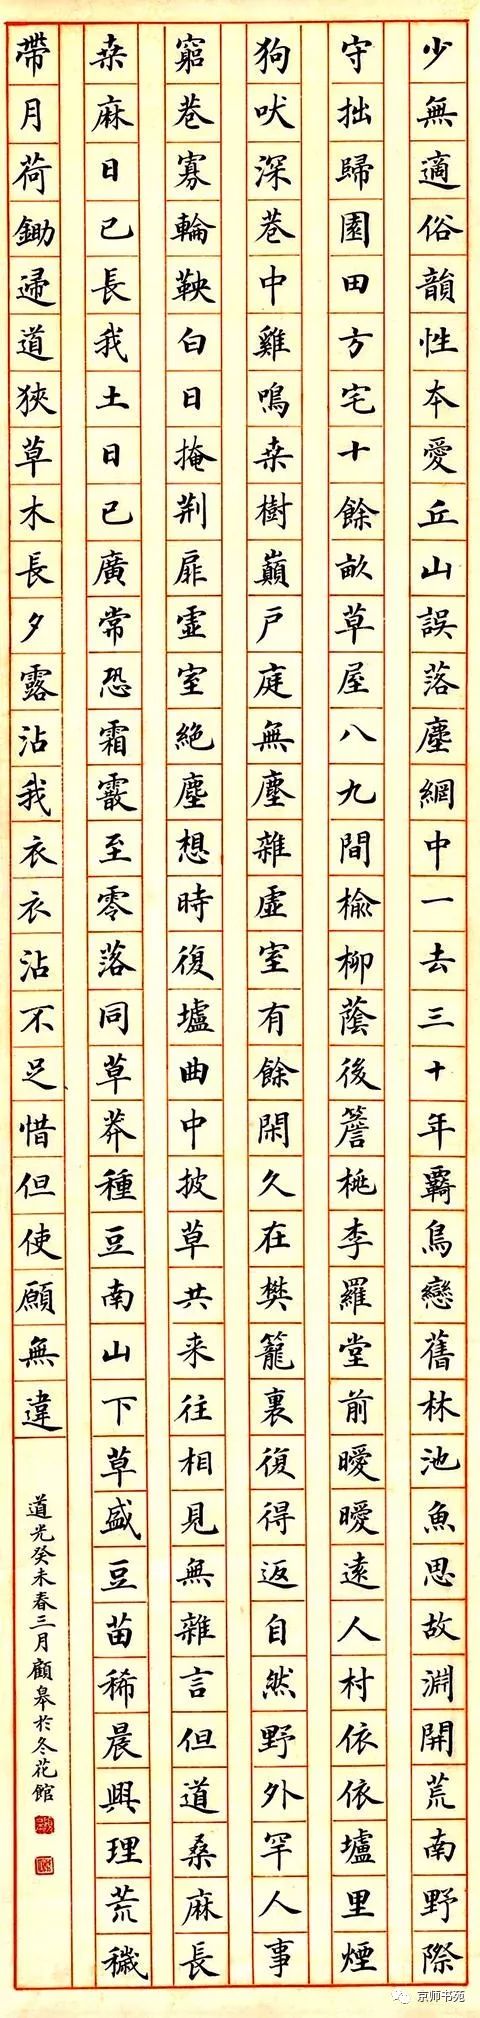 少無適俗韻性本愛丘山誤落塵網中一去三十年覉鳥戀舊林池魚思故淵開荒南野際
守拙歸園田方宅十餘畝草屋八九間榆柳蔭後簷桃李羅堂前曖曖遠人村依依墟里煙
狗吠深巷中雞鳴桒樹巔戶庭無塵雜虛室有餘閑久在樊籠裏復得返自然野外罕人事
窮巷寡輪鞅白日掩荊扉虛室絕塵想時復墟曲中披草共来往相見無雜言但道桑麻長
桒麻日已長我土日已廣常恐霜霰至零落同草莽種豆南山下草盛豆苗稀晨興理荒穢
帶月荷鋤歸道狹草木長夕露沾我衣衣沾不足惜但使願無違
道光癸未春三月顧皋於冬花館
京师书苑